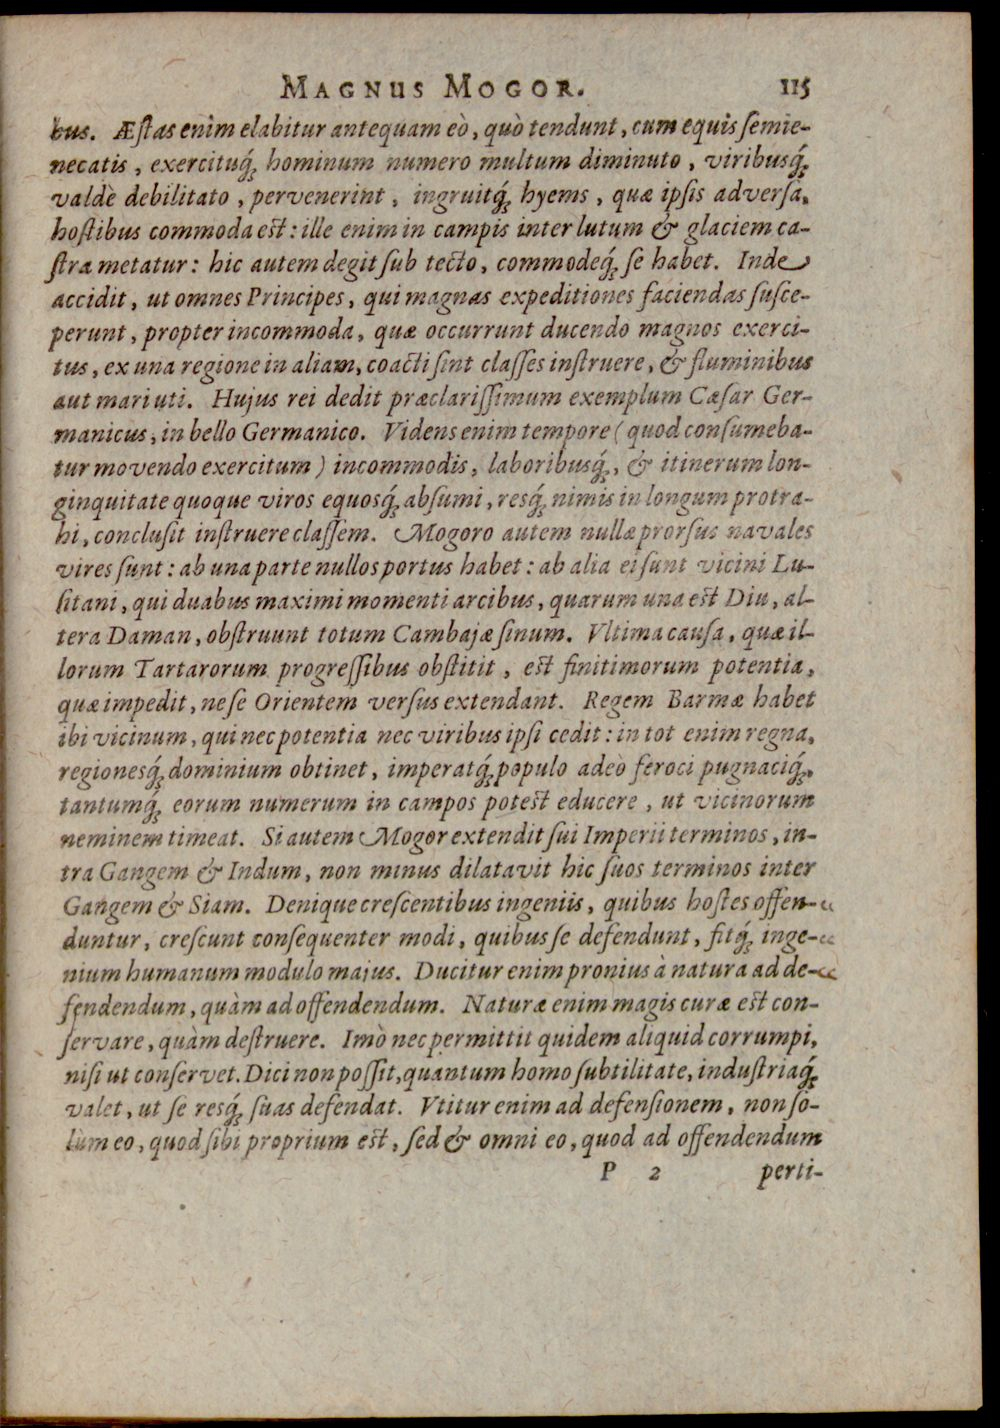 MAGNUS MOGOR. 115
bus. Æſtas enim elabitur antequam eò, quò tendunt, cum equis ſemie-
necatis, exercituq́; hominum numero multum diminuto, viribusq́;
valdè debilitato, pervenerint, ingruitq́; hyems, quæ ipſis adverſa,
hoſtibus commoda est: ille enim in campis inter lutum & glaciem ca-
ſtra metatur: hic autem degit ſub tecto, commodeq́; ſe habet. Inde
accidit, ut omnes Principes, qui magnas expeditiones faciendas ſuſce-
perunt, propter incommoda, quæ occurrunt ducendo magnos exerci-
tus, ex una regione in aliam, coacti ſint claſſes inſtruere, & fluminibus
aut mari uti. Hujus rei dedit præclariſſimum exemplum Cæſar Ger-
manicus, in bello Germanico. Videns enim tempore (quod conſumeba-
tur movendo exercitum) incommodis, laboribusq́;, & itinerum lon-
ginquitate quoque viros equosq́; abſumi, resq́; nimis in longum protra-
hi, concluſit inſtruere claſſem. Mogoro autem nullæ prorſus navales
vires ſunt: ab una parte nullos portus habet: ab alia ei ſunt vicini Lu-
ſitani, qui duabus maximi momenti arcibus, quarum una est Diu, al-
tera Daman, obſtruunt totum Cambajæ ſinum. Vltima cauſa, quæ il-
lorum Tartarorum progreſſibus obſtitit, est finitimorum potentia,
quæ impedit, ne ſe Orientem verſus extendant. Regem Barmæ habet
ibi vicinum, qui nec potentia nec viribus ipſi cedit: in tot enim regna,
regionesq́; dominium obtinet, imperatq́; populo adeò feroci pugnaciq́;,
tantumq́; eorum numerum in campos potest educere, ut vicinorum
neminem timeat. Si autem Mogor extendit ſui Imperii terminos, in-
tra Gangem & Indum, non minus dilatavit hic ſuos terminos inter
Gangem & Siam. Denique creſcentibus ingeniis, quibus hoſtes offen-
duntur, creſcunt conſequenter modi, quibus ſe defendunt, fitq́; inge-
nium humanum modulo majus. Ducitur enim pronius à natura ad de-
fendendum, quàm ad offendendum. Naturæ enim magis curæ est con-
ſervare, quàm deſtruere. Imò nec permittit quidem aliquid corrumpi,
niſi ut conſervet. Dici non poſſit, quantum homo ſubtilitate, induſtriaq́;
valet, ut ſe resq́; ſuas defendat. Vtitur enim ad defenſionem, non ſo-
lùm eo, quod ſibi proprium est, ſed & omni eo, quod ad offendendum
P 2 perti-